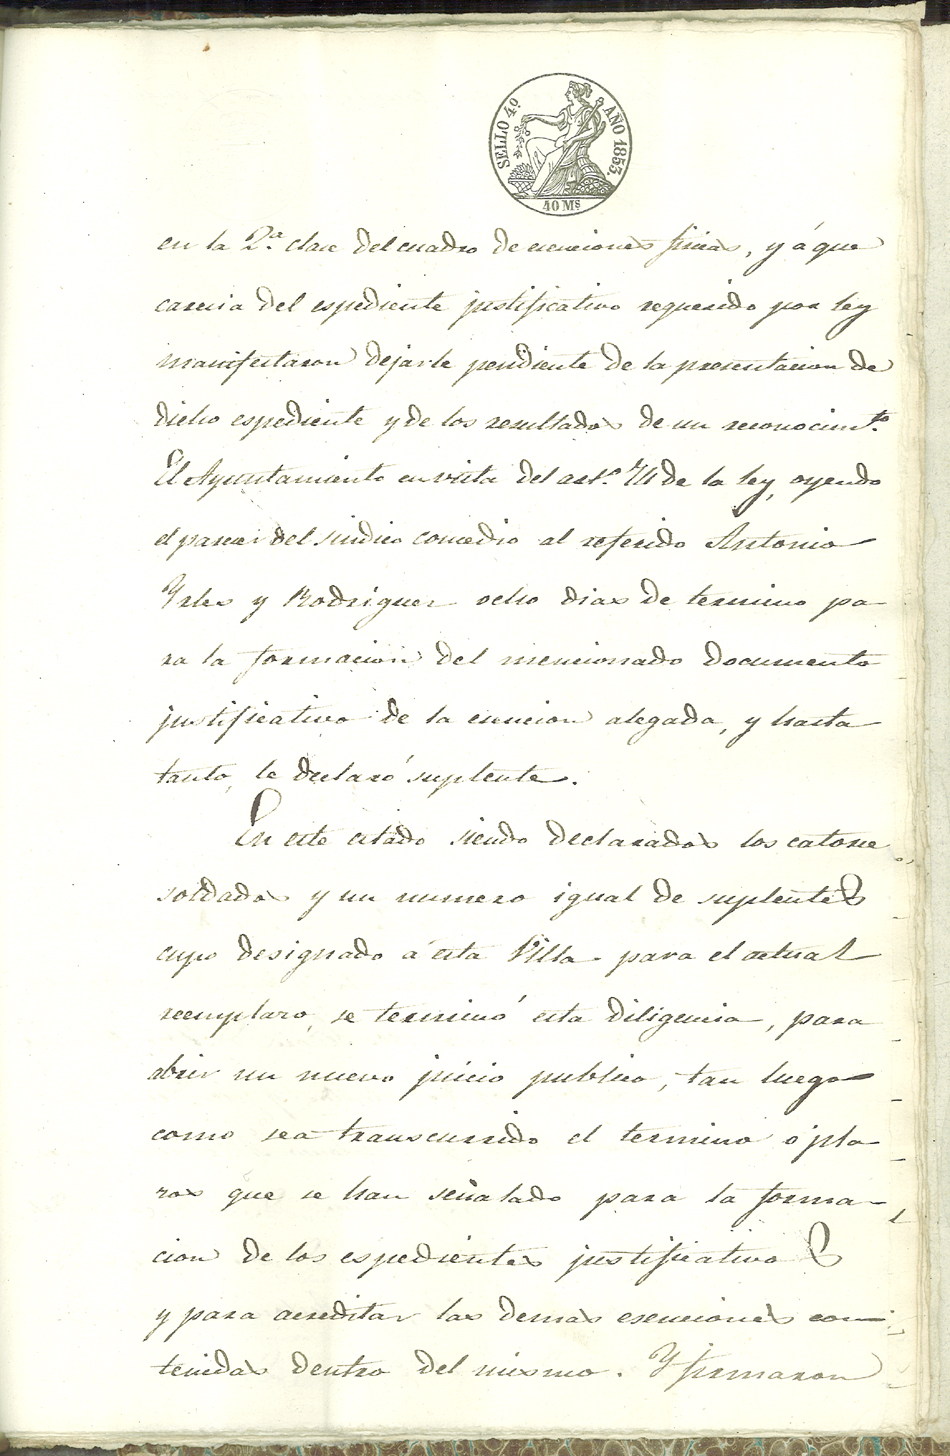 SELLO 4º. AÑO 1853.
40 Ms
en la 2.ª clase del cuadro de esenciones fisicas, y á que
carecia del espediente justificativo requerido por ley
manifestaron dejarle pendiente de la presentacion de
dicho espediente y de los resultados de un reconocimto.
El Ayuntamiento en vista del art.º 74 de la ley, oyendo
el parecer del sindico concedio al referido Antonio
y Rodriguez ocho dias de termino pa-
ra la formacion del mencionado documento
justificativo de la esencion alegada, y hasta
tanto, le declaró suplente.
En este estado siendo declarados los catorce
soldados y un numero igual de suplentes
cupo designado á esta Villa para el actual
reemplazo, se terminó esta diligencia, para
abrir un nuevo juicio publico, tan luego
como sea transcurrido el termino ó pla-
zos que se han señalado para la forma-
cion de los espedientes justificativos
y para acreditar las demas esenciones con-
tenidas dentro del mismo. Y firmaron